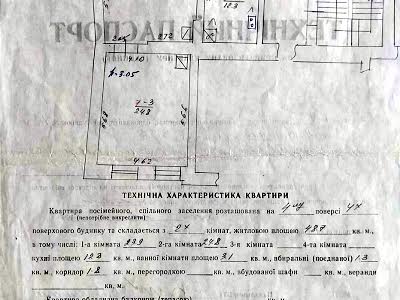 ТЕХНІЧНИЙ ПАСПОРТ
12.3
4.10
h=3.05
1-3
24.8
4.62
ТЕХНІЧНА ХАРАКТЕРИСТИКА КВАРТИРИ
Квартира посімейного, спільного заселення розташована на 4му поверсі 4х
(непотрібне викреслити)
поверхового будинку та складається з 2х кімнат, житловою площею 48.7 кв. м.,
в тому числі: 1-а кімната 23.9 2-га кімната 24.8 3-я кімната 4-та кімната
кухні площею 12.3 кв. м., ванної кімнати площею 3.1 кв. м., вбиральні (поєднаної) 1.3
кв. м., коридор 1.8 кв. м., перегородкою кв. м., вбудованої шафи кв. м., веранди
кв. м.
Квартира обладнана балконом (терасою)